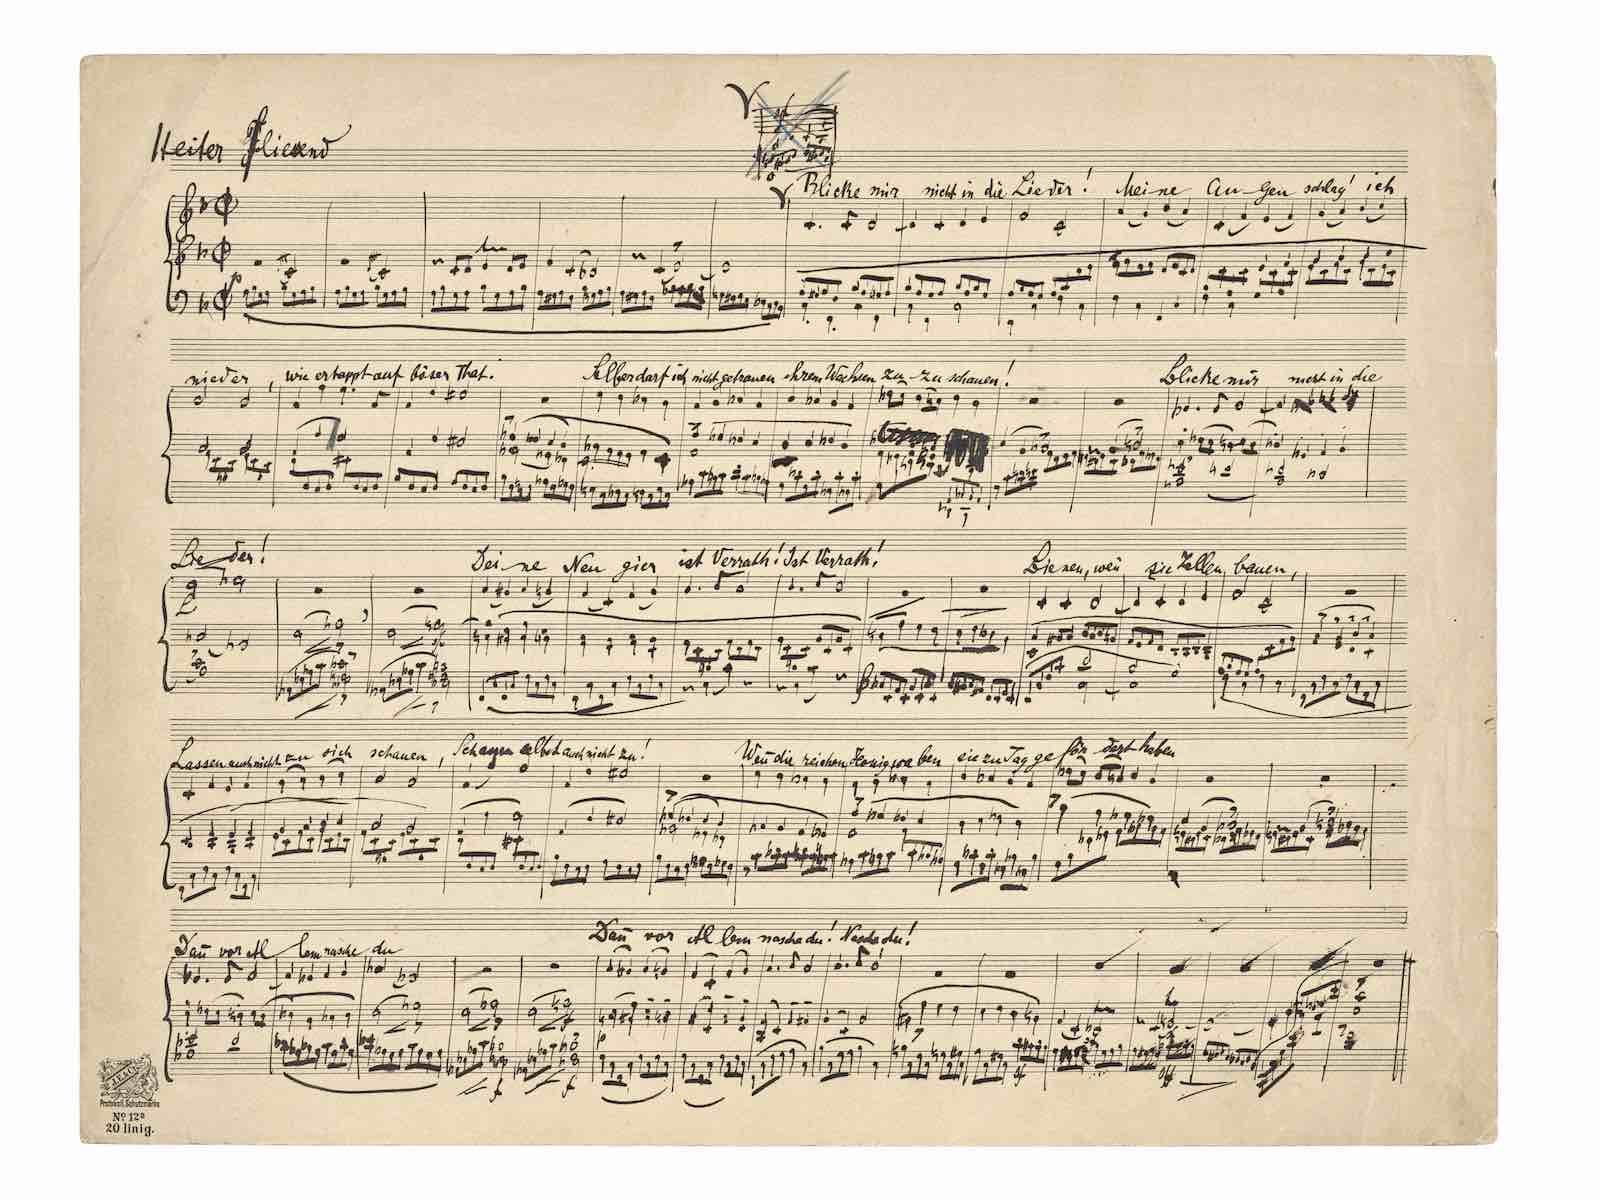 Heiter Fließend
Blicke mir nicht in die Lieder! Meine Au-gen schlag' ich
nieder, wie ertappt auf böser That.
Selber darf ich nicht getrauen ihrem Wachsen zu-zuschauen!
Blicke mir nicht in die
Lie-der!
Dei-ne Neu gier ist Verrath! Ist Verrath!
Bienen, weñ sie Zellen bauen,
Lassen auch nicht zu sich schauen, Schauen selbst auch nicht zu!
Weñ die reichen Honigwaben sie zu Tag ge för dert haben
Dañ vor Al lem nasche du
Dañ vor Al lem nasche du! Nasche du!
J.E.&Co.
Protokoll. Schutzmarke
No 12a
20 linig.